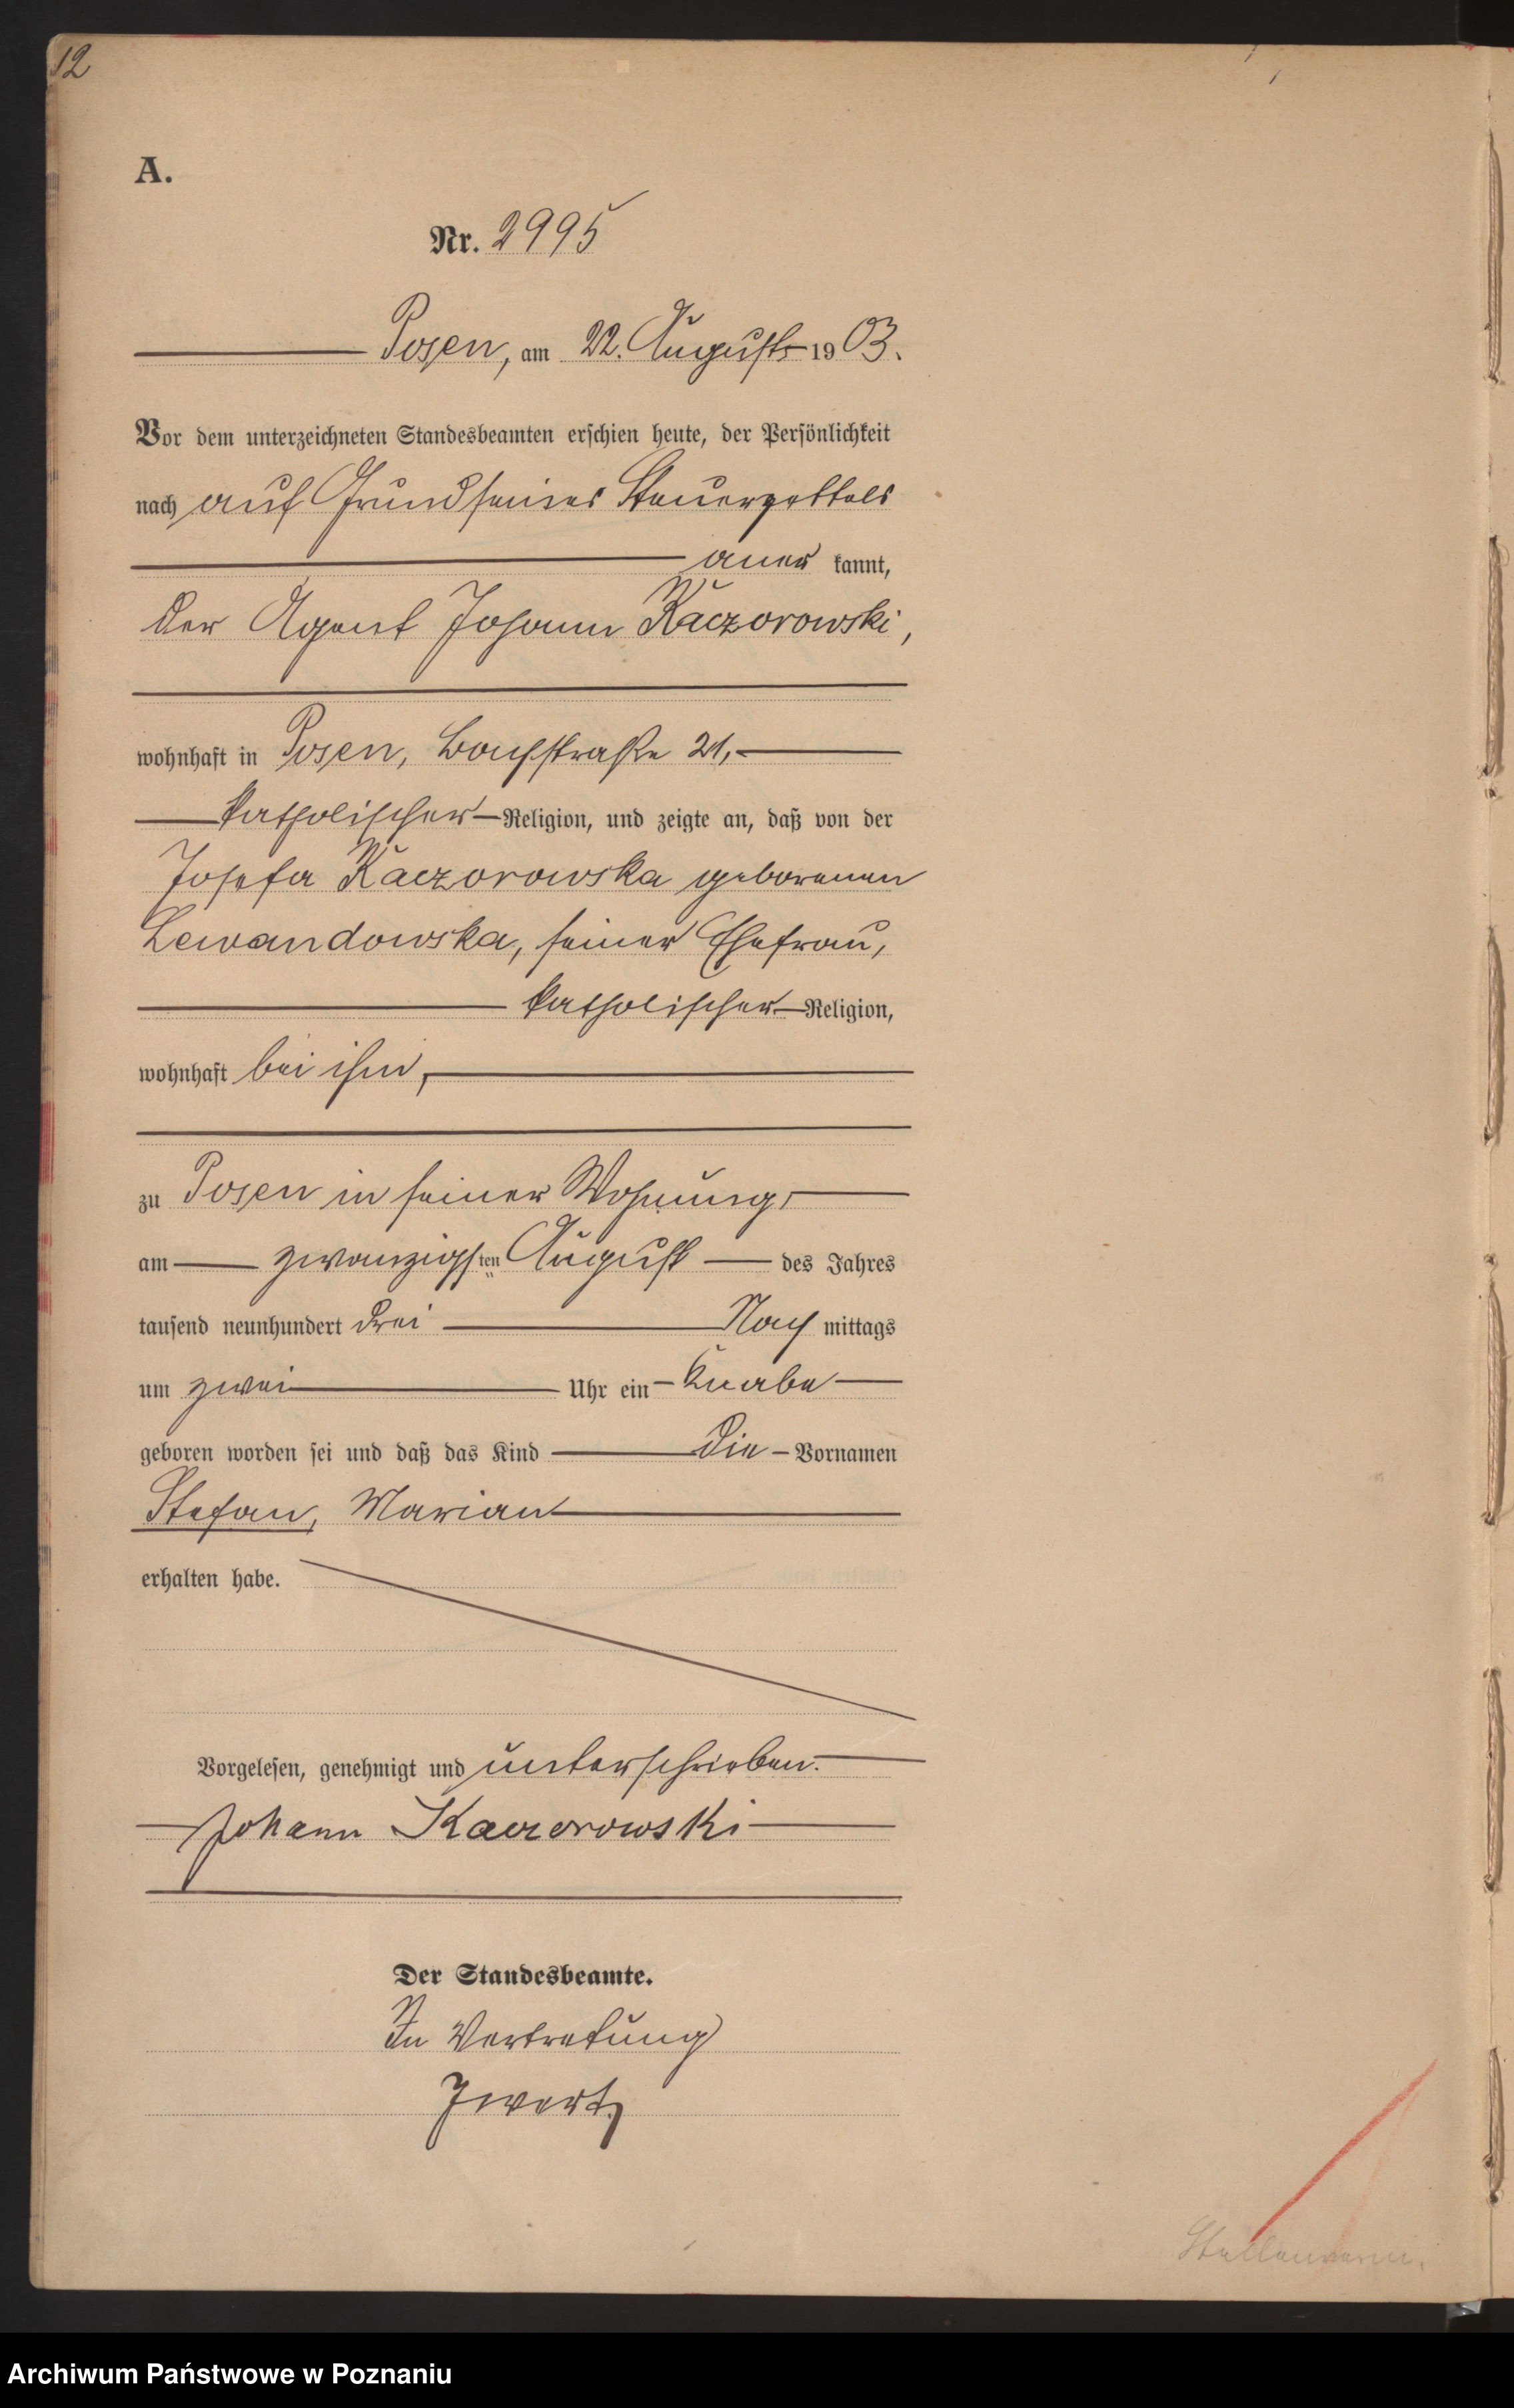 12
A.
Nr. 2995
Posen, am 22. August 1903.
Vor dem unterzeichneten Standesbeamten erschien heute, der Persönlichkeit
nach auf Grund seines Steuerzettels
aner kannt,
der Agent Johann Kaczorowski,
wohnhaft in Posen, Bachstraße 21,
katholischer Religion, und zeigte an, daß von der
Josefa Kaczorowska geborenen
Lewandowska, seiner Ehefrau,
katholischer Religion,
wohnhaft bei ihm,
zu Posen in seiner Wohnung,
am zwanzigsten August des Jahres
tausend neunhundert drei Nach mittags
um zwei Uhr ein Knabe
geboren worden sei und daß das Kind die Vornamen
Stefan, Marian
erhalten habe.
Vorgelesen, genehmigt und unterschrieben.
Johann Kaczorowski
Der Standesbeamte.
In Vertretung
Archiwum Państwowe w Poznaniu